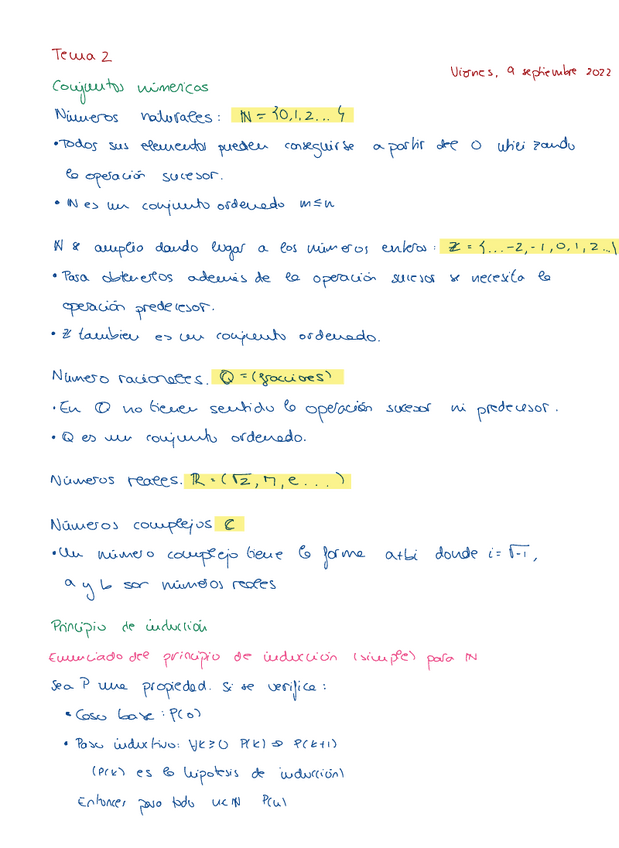 Tema 2
Viernes, 9 septiembre 2022
Conjuntos numericos
Números naturales: ℕ = {0,1,2...}
•Todos sus elementos pueden conseguirse a partir del 0 utilizando
la operación sucesor.
• ℕ es un conjunto ordenado m≤n
ℕ se amplia dando lugar a los números enteros: ℤ = {...-2,-1,0,1,2..}
• Para obtenerlos además de la operación sucesor se necesita la
operación predecesor.
• ℤ tambien es un conjunto ordenado.
Número racionales. ℚ = (fracciones)
• En ℚ no tienen sentido la operación sucesor ni predecesor.
• ℚ es un conjunto ordenado.
Números reales. ℝ = (√2, π, e...)
Números complejos ℂ
• Un número complejo tiene la forma a+bi donde i=√-1,
a y b son números reales
Principio de inducción
Enunciado del principio de inducción (simple) para ℕ
Sea P una propiedad. Si se verifica:
• Caso base: P(0)
• Paso inductivo: ∀k≥0 P(k) ⇒ P(k+1)
(P(k) es la hipotesis de inducción)
Entonces para todo n∈ℕ P(n)